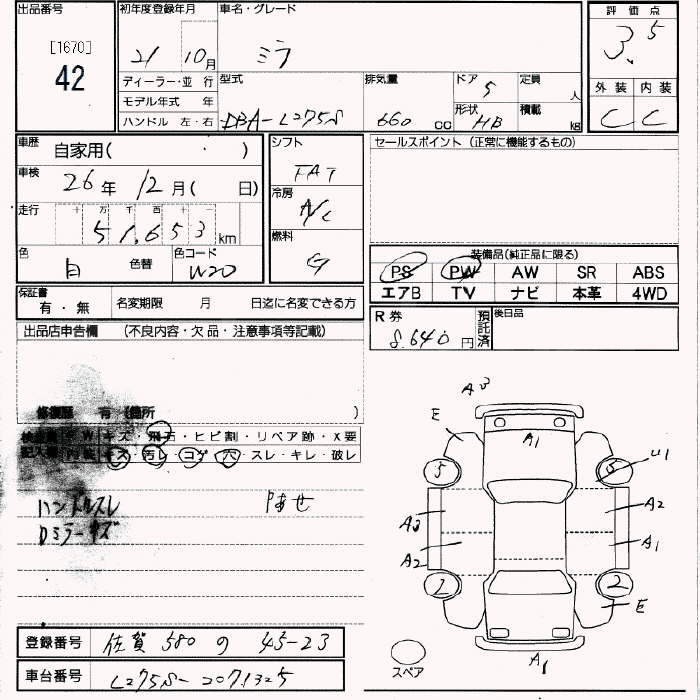 出品番号
[1670]
42
初年度登録年月
21 10月
車名・グレード
ミラ
評価点
3.5
外装 内装
C C
ディーラー・並行
モデル年式 年
ハンドル 左・右
型式
DBA-L275S
排気量
660 CC
ドア
5
形状
HB
定員
人
積載
kg
車歴
自家用( )
車検
26年 12月( 日)
走行
十 万 千 百 十 一
51,653 km
色
白
色替
色コード
W20
シフト
FAT
冷房
A/C
燃料
G
セールスポイント (正常に機能するもの)
装備品(純正品に限る)
PS PW AW SR ABS
エアB TV ナビ 本革 4WD
保証書
有・無
名変期限 月 日迄に名変できる方
R券
8.640円
預託済
後日品
出品店申告欄 (不良内容・欠品・注意事項等記載)
修復歴 有 (箇所 )
検査員記入欄
キズ・飛石・ヒビ割・リペア跡・X要
内装 キズ・汚レ・コゲ・穴・スレ・キレ・破レ
ハンドルスレ
Dミラーキズ
A3
E
A1
U1
5
5
A3
A2
A2
A1
2
E
A1
スペア
登録番号
佐賀 580 の 45-23
車台番号
L275S-2071325